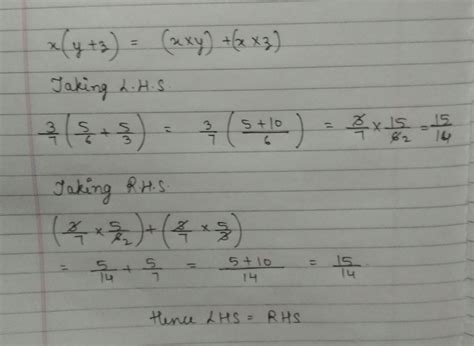 x(y+z) = (x×y) + (x×z)
Taking L.H.S.
3/7 (5/6 + 5/3) = 3/7 (5+10/6) = 3/7 × 15/6 2 = 15/14
Taking R.H.S.
(3/7 × 5/6 2) + (3/7 × 5/3)
= 5/14 + 5/7 = 5+10/14 = 15/14
Hence LHS = RHS